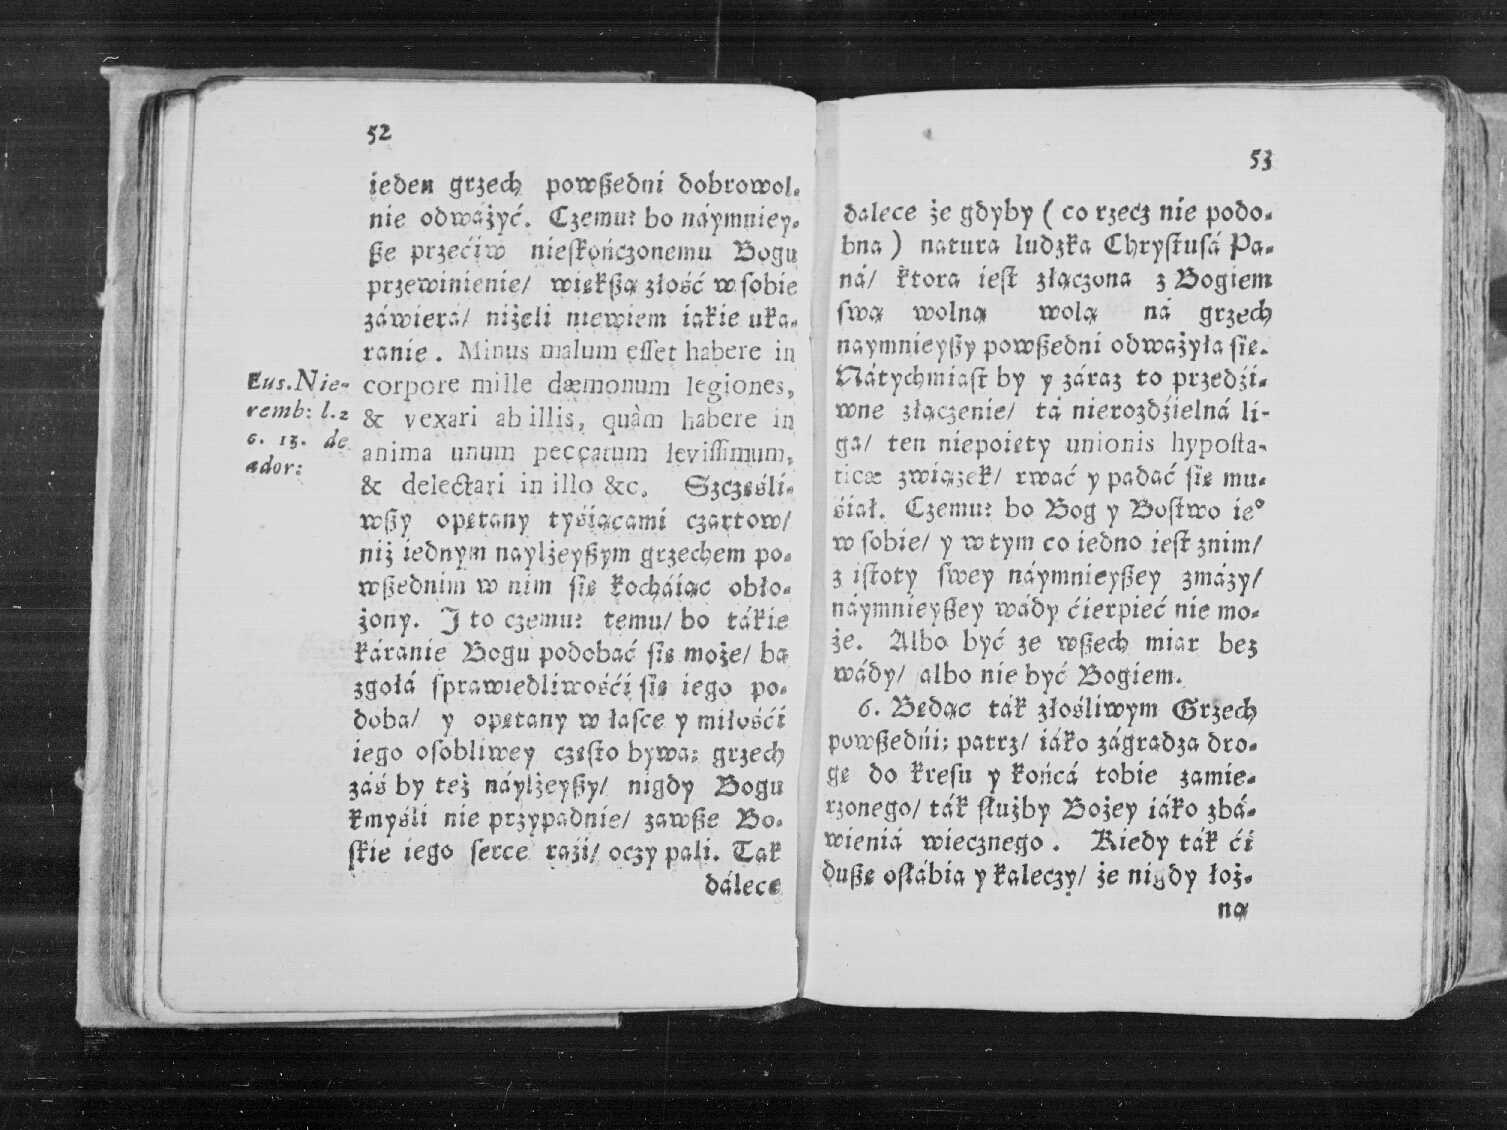 52
ieden grzech powßedni dobrowol-
nie odważyć. Czemu? bo náymniey-
ße przećiw nieskończonemu Bogu
przewinienie/ więkßą złość w sobie
záwiera/ niżeli niewiem iakie uka-
ranie. Minus malum esset habere in
corpore mille dæmonum legiones,
& vexari ab illis, quàm habere in
anima unum peccatum levissimum,
& delectari in illo &c. Szczęśli-
wßy opętany tyśiącami czartow/
niż iednym naylżeyßym grzechem po-
wßednim w nim się kocháiąc obło-
żony. J to czemu? temu/ bo tákie
káranie Bogu podobać się może/ ba
zgołá sprawiedliwośći się iego po-
doba/ y opętany w łasce y miłośći
iego osobliwey często bywa; grzech
záś by też náylżeyßy/ nigdy Bogu
kmyśli nie przypadnie/ zawße Bo-
skie iego serce raźi/ oczy pali. Tak
dálece
Eus. Nie-
remb: l. 2
c. 13. de
ador:
53
dalece że gdyby ( co rzecz nie podo-
bna ) natura ludzka Chrystusá Pa-
ná/ ktora iest złączona z Bogiem
swą wolną wolą ná grzech
naymnieyßy powßedni odważyła się.
Nátychmiast by y záraz to przedźi-
wne złączenie/ tá nierozdźielná li-
ga/ ten niepoięty unionis hyposta-
ticæ związek/ rwać y padać się mu-
śiał. Czemu? bo Bog y Bostwo ie°
w sobie/ y w tym co iedno iest znim/
z istoty swey náymnieyßey zmázy/
náymnieyßey wády ćierpieć nie mo-
że. Albo być ze wßech miar bez
wády/ albo nie być Bogiem.
6. Będąc ták złośliwym Grzech
powßedńi; patrz/ iáko zágradza dro-
gę do kresu y końcá tobie zamie-
rzonego/ ták służby Bożey iáko zbá-
wieniá wiecznego. Kiedy ták ći
dußę osłábia y kaleczy/ że nigdy łoż-
ną